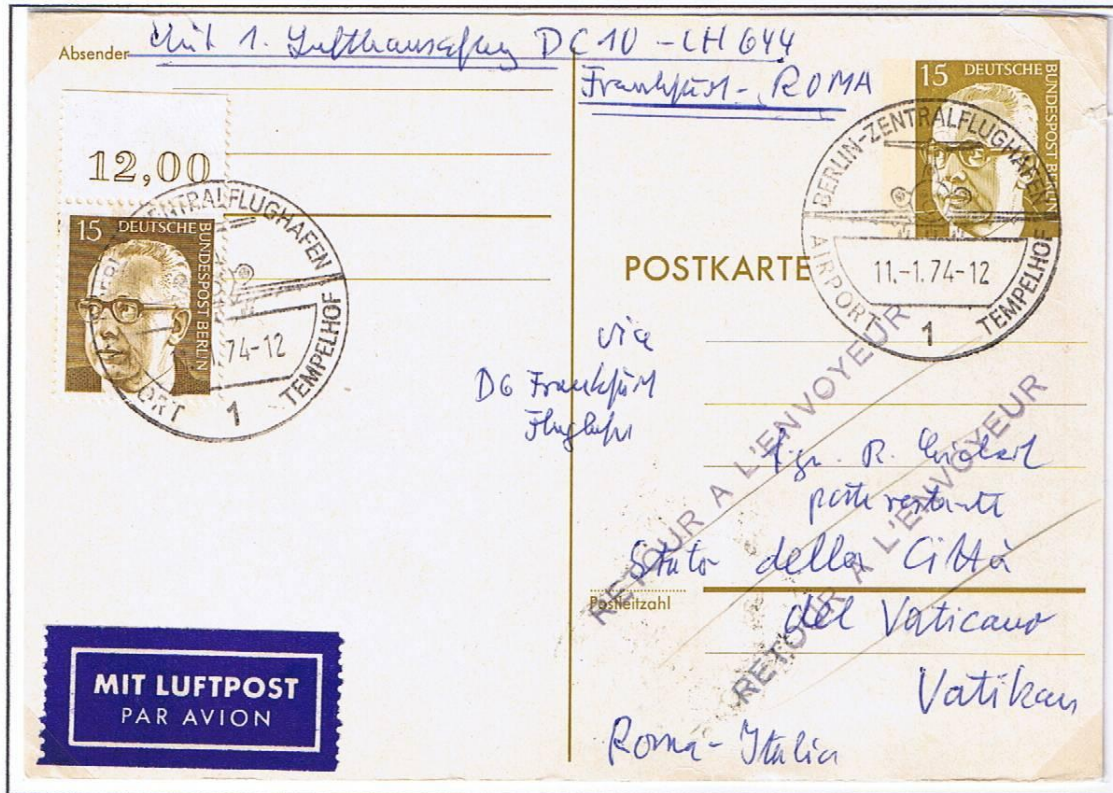 Absender Mit 1. Lufthansaflug DC 10 - LH 644
Frankfurt - ROMA
12,00
15 DEUTSCHE BUNDESPOST BERLIN
ZENTRALFLUGHAFEN
74-12
TEMPELHOF
1
15 DEUTSCHE BUNDESPOST BERLIN
BERLIN-ZENTRALFLUGHAFEN
11.-1.74-12
AIRPORT TEMPELHOF
1
POSTKARTE
via
DG Frankfurt
Flughafen
RETOUR A L'ENVOYEUR
RETOUR A L'ENVOYEUR
Sgr. R.
poste restante
Stato della Città
Postleitzahl
del Vaticano
Vatikan
Roma - Italia
MIT LUFTPOST
PAR AVION